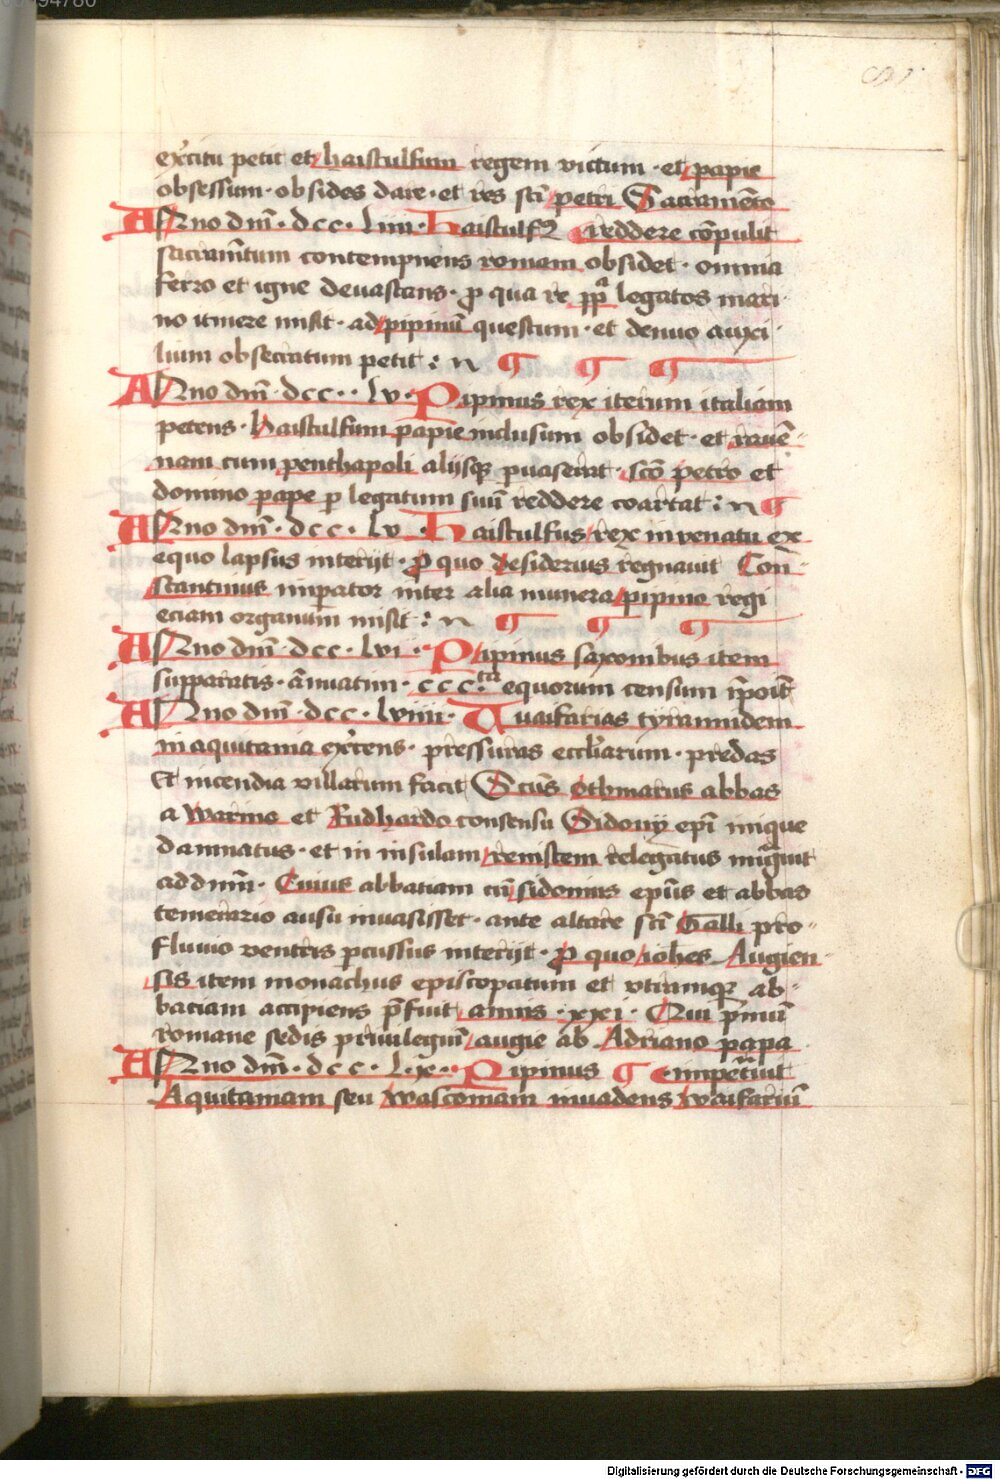 exᵉcitu petit et haistulfum regem victum · et papie
obsessum · obsides dare · et res sc̄i petri Sacramēto
ANno dn̄i · dcc · liiii · Haistulf9 ¶ reddere cōpulit
sacram̄tum contempnens romam obsidet · omnia
ferro et igne devastans · ꝓ qua re pp̄a legatos mari
no itinere misit · ad pipinū questum · et denuo auxi
lium obsecratum petit :
ANno dn̄i · dcc · · lv · Pipinus rex iterum italiam
petens · haistulfum papie inclusum obsidet · et ravē-
nam cum penthapoli alijsqꝫ pvaserat · sc̄o petro et
domino pape ꝑ legatum suū reddere coartat :
ANno dn̄i · dcc · lv · Haistulfus rex in venatu ex
equo lapsus interijt · ꝓ quo desiderius regnavit Con̄-
stantinus imꝑator inter alia munera pipino regi
eciam organum misit :
ANno dn̄i · dcc · lvi · Pipinus saxonibus item
suꝑꝑatis · ānuatim · ccc · tᵃ equorum censum īpoīt
ANno dn̄i · dcc · lviiii · Uuaifarias tyrannidem
in aquitania exᵉcens · pressuras eccl̄iarum · predas
Et incendia villarum facit Sc̄us Othmarus abbas
a warino et Rudhardo consensu Sidonij epī inique
damnatus · et in insulam reinstem relegatus migᵃuit
ad dn̄m · Cuius abbatiam cū sidonius epūs et abbas
temerario ausu invasisset · ante altare sc̄i Galli pro-
fluvio ventris ꝑcussus interijt · ꝓ quo iohēs Augien-
sis item monachus episcopatum et utramqꝫ ab-
baciam accipiens p̄fuit annis · xxi · Qui p̄mū
romane sedis privilegiū augie ab Adriano papa
ANno dn̄i · dcc · lx · Pipinus ¶ empetᵃuit
Aquitaniam seu wasconiam invadens waifariū
Digitalisierung gefördert durch die Deutsche Forschungsgemeinschaft - DFG